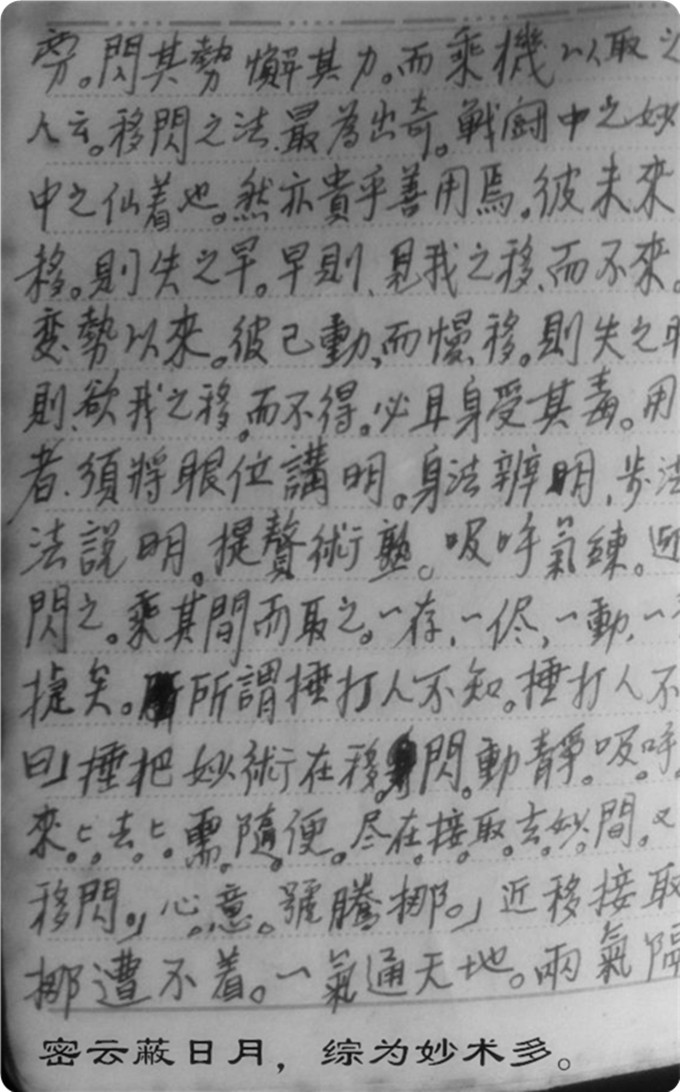 旁。閃其勢懈其力。而乘機以取之
人云。移閃之法、最為出奇。戰鬪中之妙
中之仙着也。然亦貴乎善用焉。彼未來
移。則失之早。早則、見我之移、而不來。
变勢以來。彼已動、而慢移。則失之
則、欲我之移、而不得。必且身受其毒。用
者、須將眼位講明。身法辨明、步法
法說明。提聱術塾。吸呼氣練。近
閃之。乘其間而取之。一存、一侭、一動、一
捷矣。所謂捶打人不知。捶打人不
曰」捶把妙術在移閃。動靜。吸呼。
來。去。需。隨。便。尽。在。接。取。去。妙。間。又
移閃。」心。意。號騰挪。」近移接取
挪遭不着。一氣通天地。兩氣隔
密云蔽日月，综为妙术多。